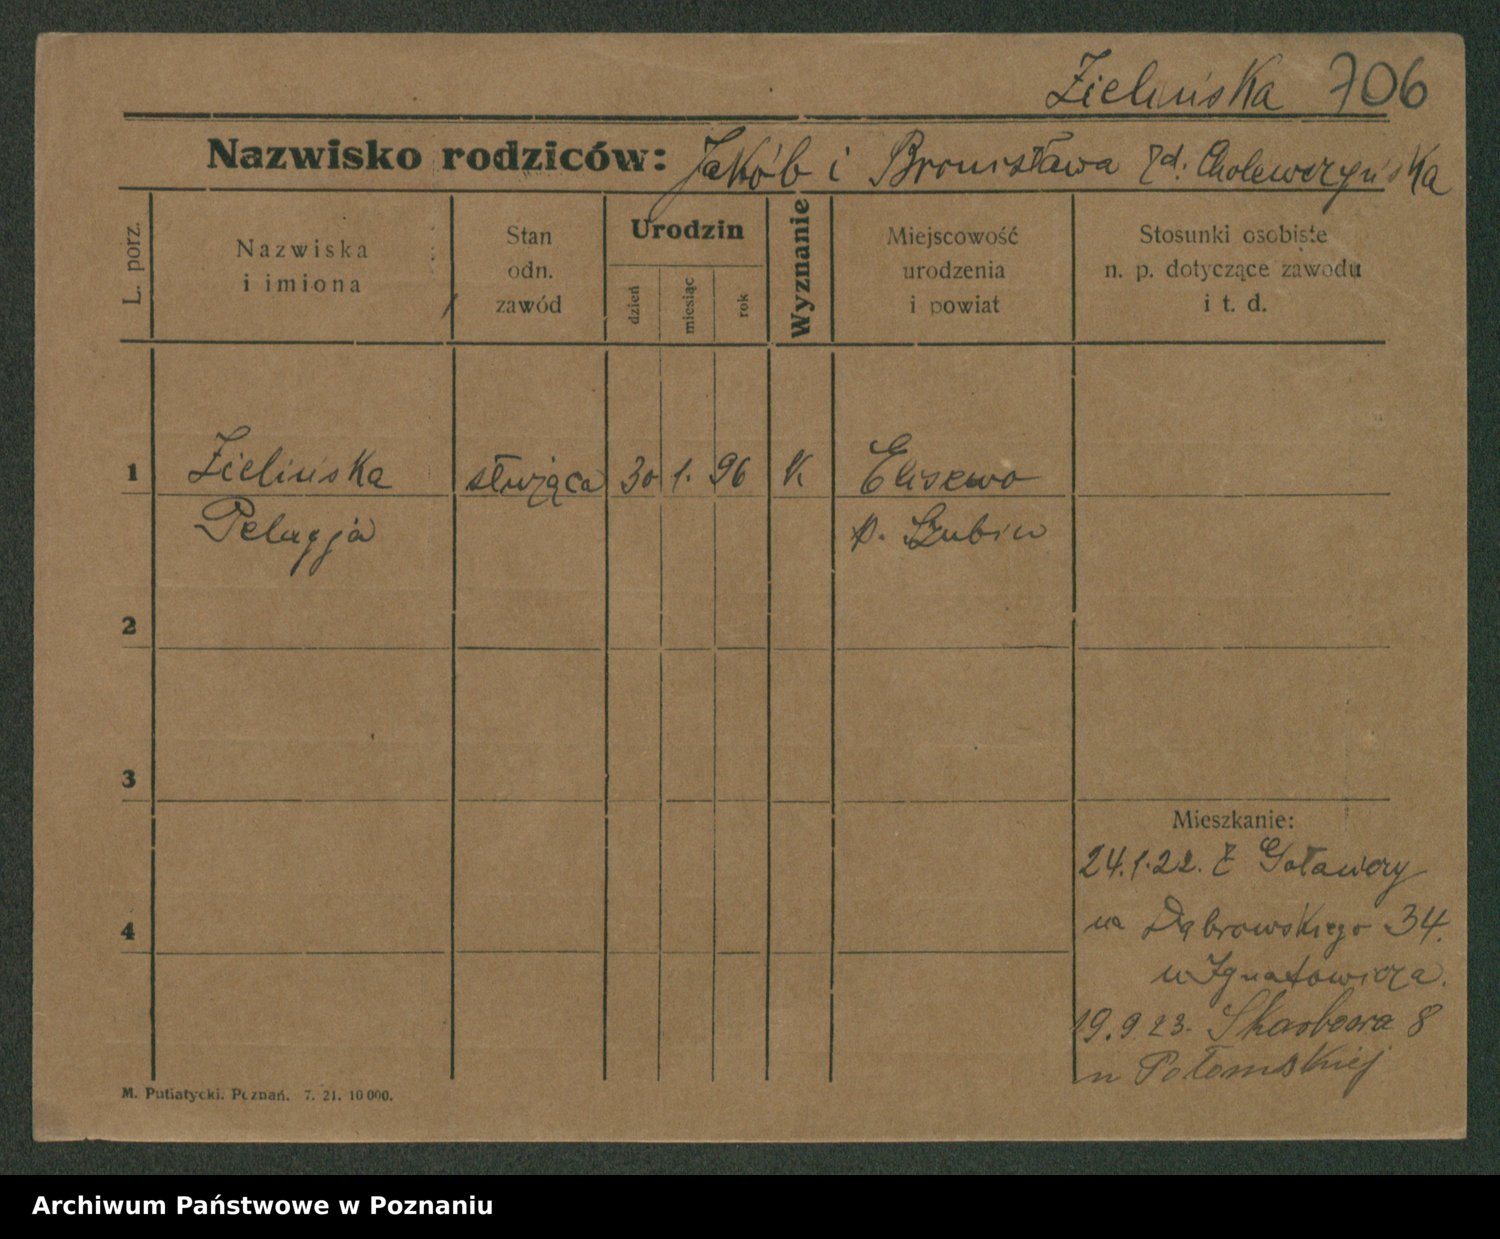 Zielińska 706
Nazwisko rodziców: Jakób i Bronisława rd. Cholewczyńska
L. porz.
Nazwiska
i imiona
Stan
odn.
zawód
Urodzin
dzień
miesiąc
rok
Wyznanie
Miejscowość
urodzenia
i powiat
Stosunki osobiste
n. p. dotyczące zawodu
i t. d.
1 Zielińska służąca 30 1. 96 K Elisewo
Pelagja p. Szubin
2
3
Mieszkanie:
24.1.22. Z Gołańczy
4
na Dąbrowskiego 34.
u Ignatowicza.
19.9 23. Skarbowa 8
u Potomskiej
M. Putiatycki. Poznań. 7. 21. 10 000.
Archiwum Państwowe w Poznaniu